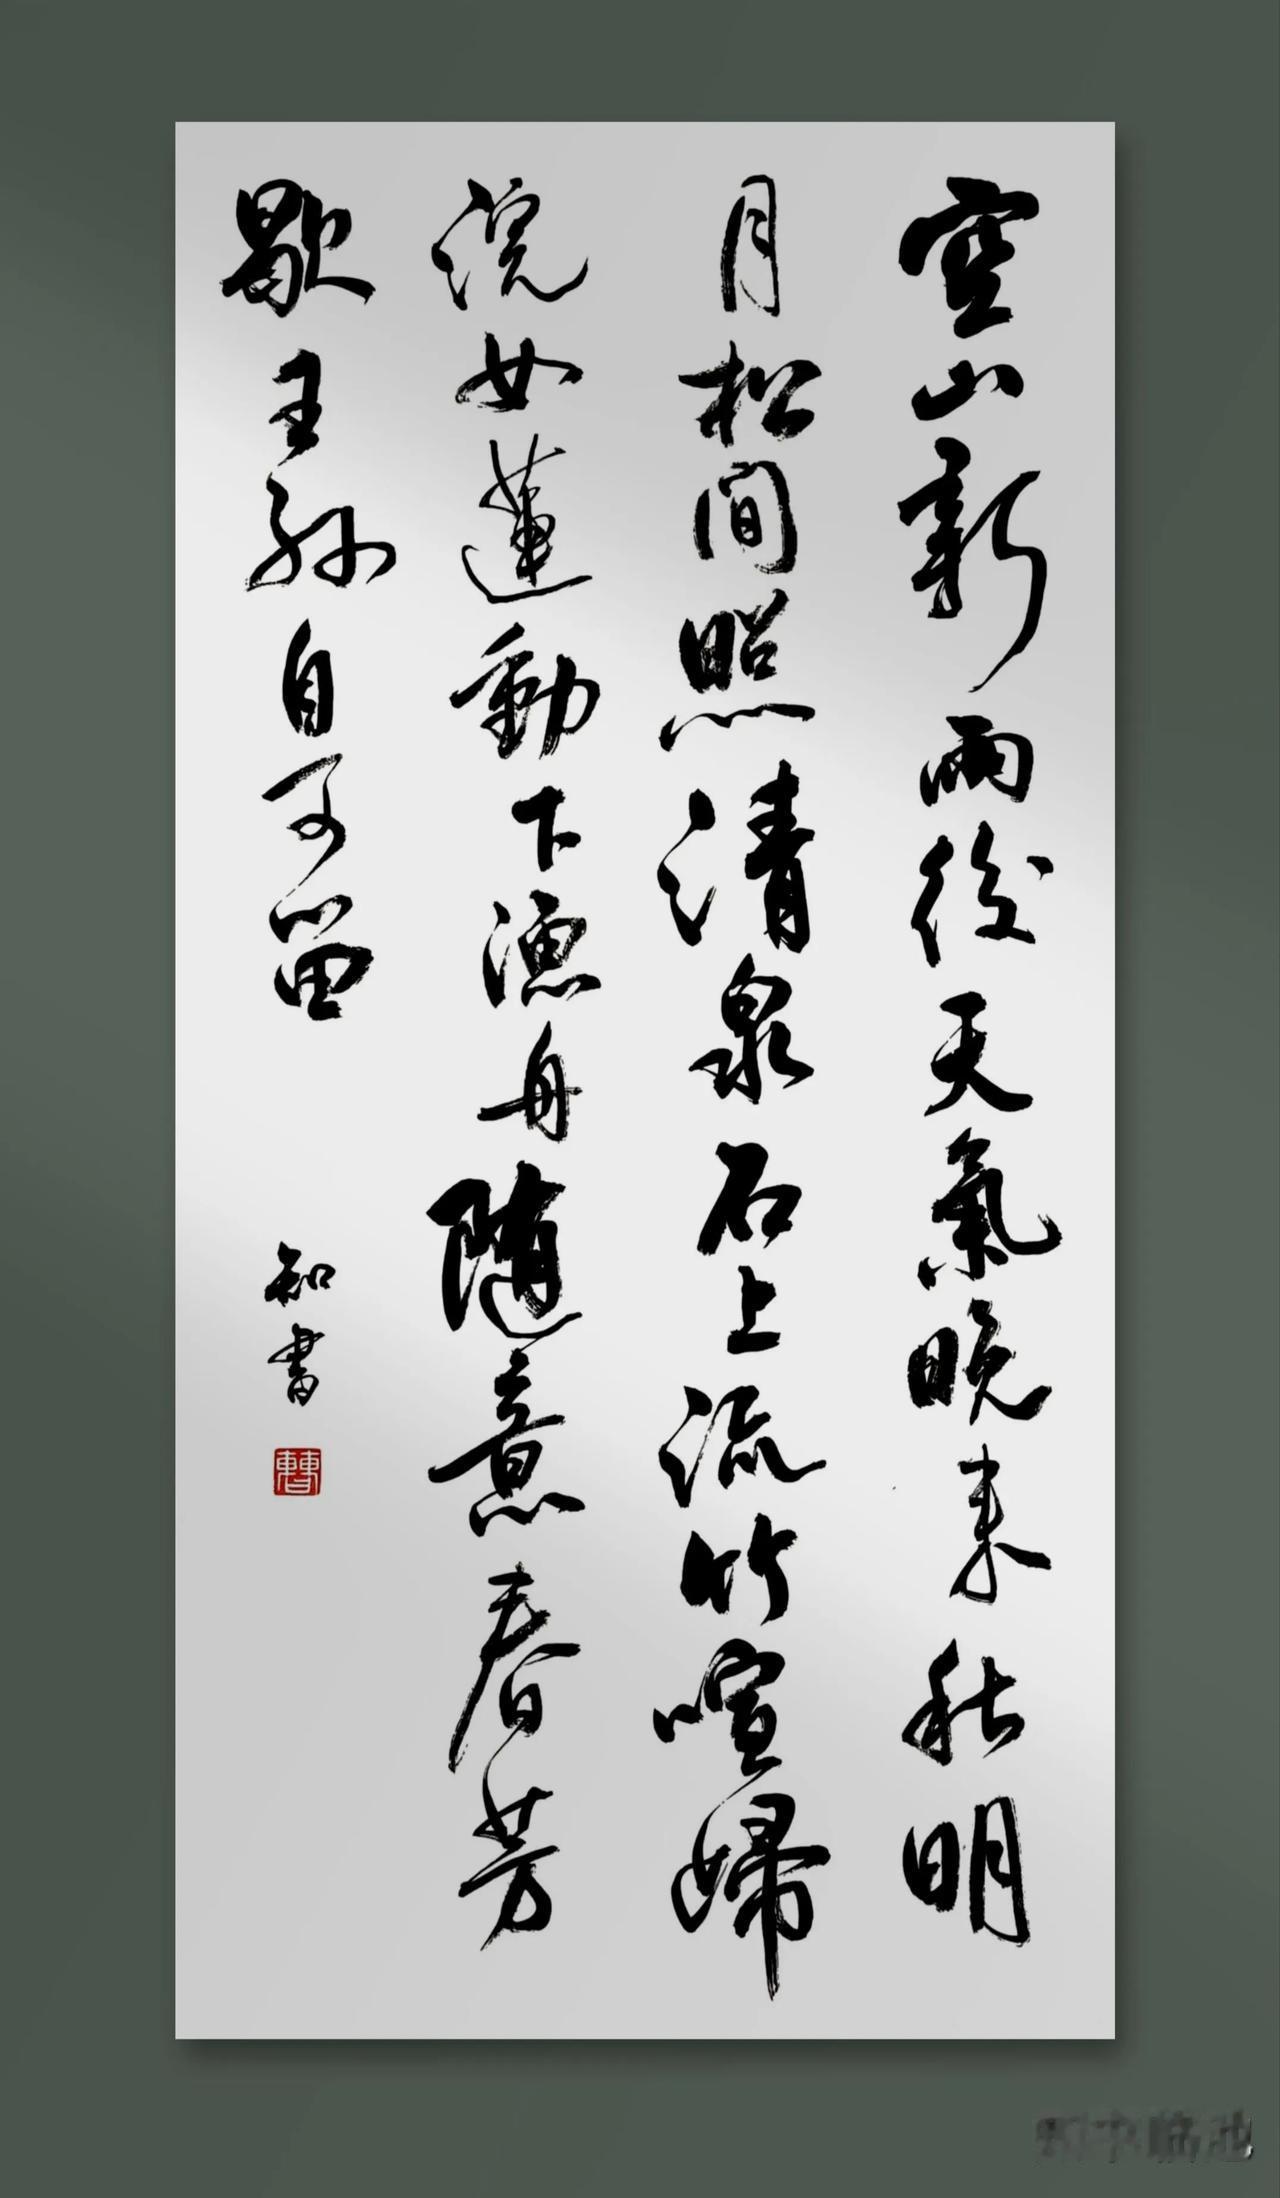 空山新雨後天氣晚来秋明
月松间照清泉石上流竹喧婦
浣女蓮動下漁舟随意春芳
歇王孙自可留
知書